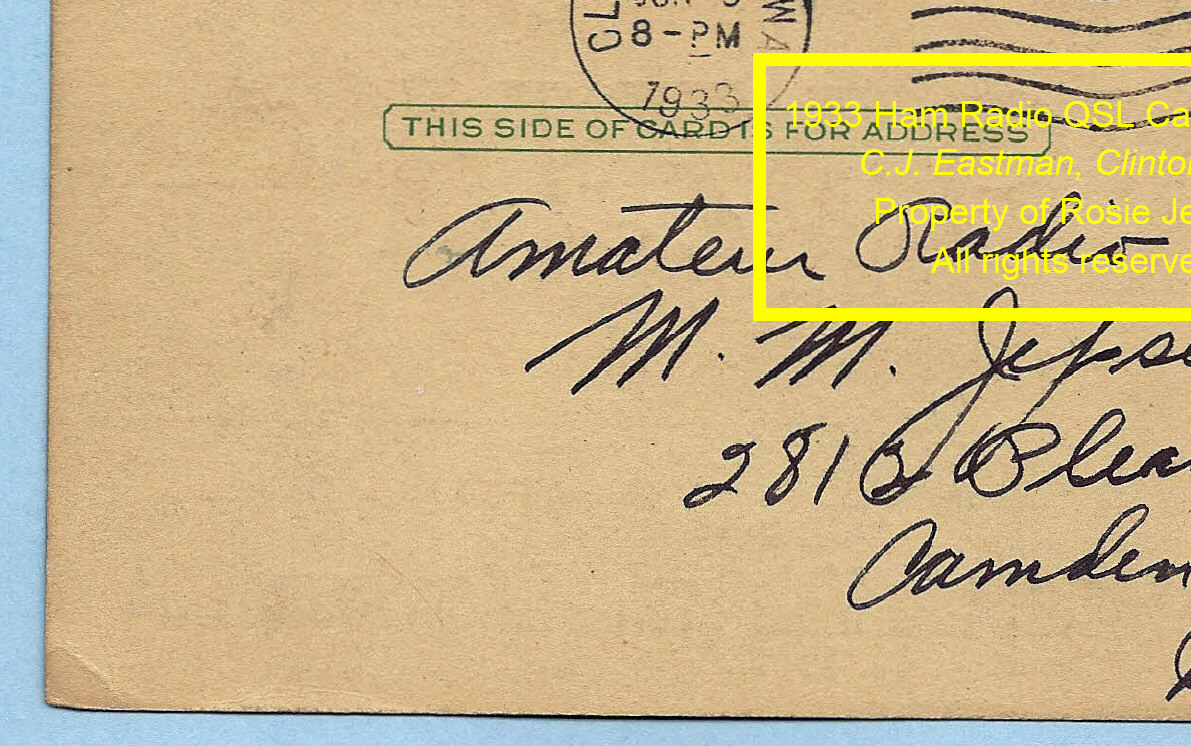 CL
WA
8-PM
1933
THIS SIDE OF CARD IS FOR ADDRESS
1933 Ham Radio QSL Ca
C.J. Eastman, Clinton
Property of Rosie Je
All rights reserve
Amateur Radio
M. M. Jepse
2813 Plea
Camden